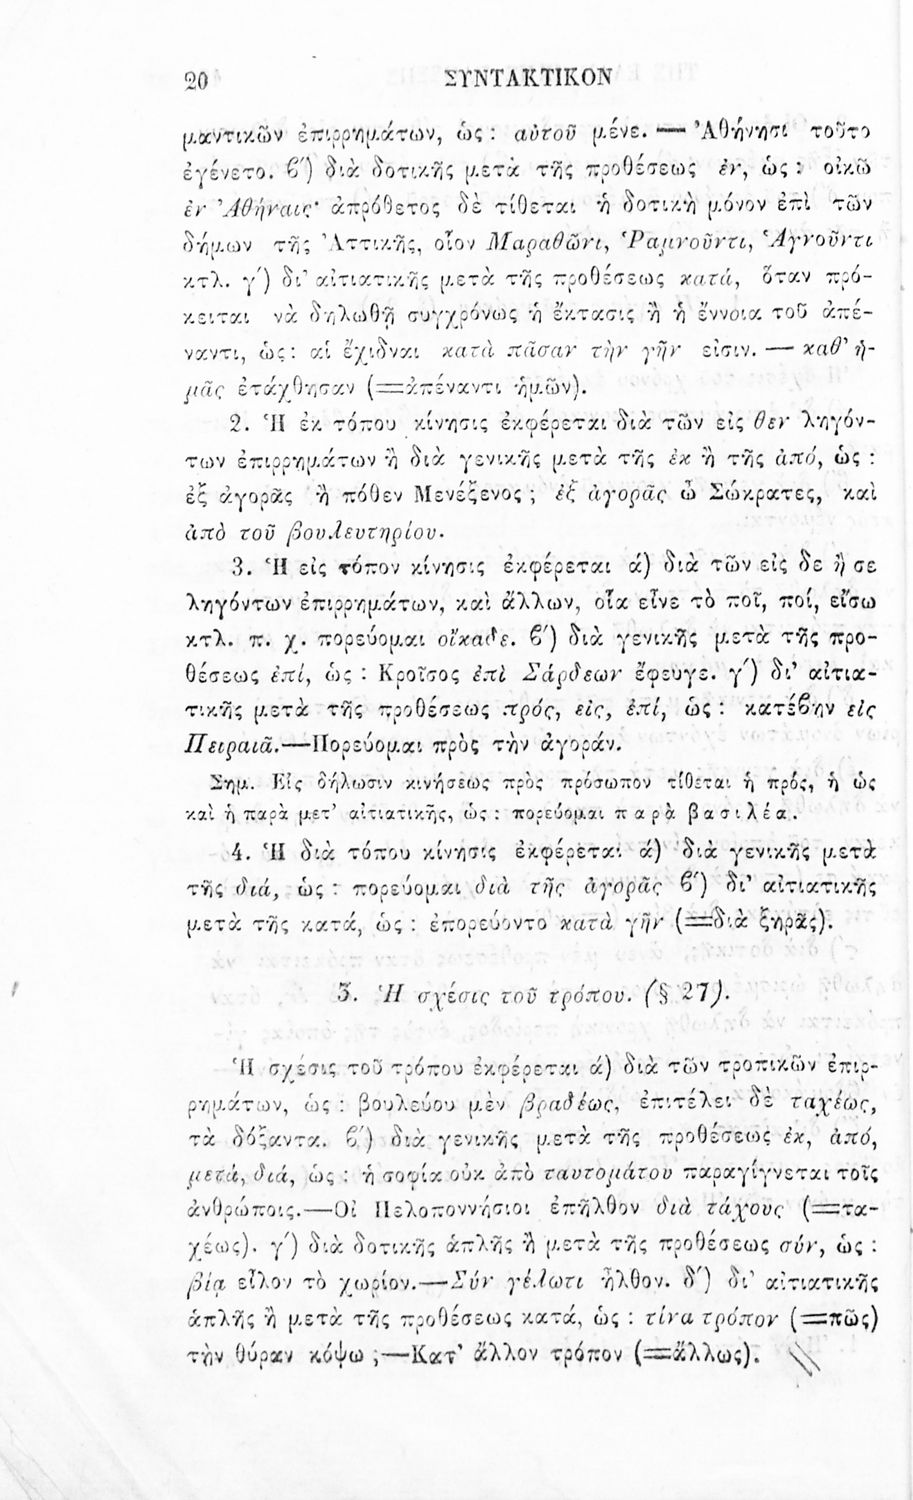 20 ΣΥΝΤΑΚΤΙΚΟΝ
μαντικῶν ἐπιρρημάτων, ὡς : αὐτοῦ μένε. — Ἀθήνησι τοῦτο
ἐγένετο. β΄) διὰ δοτικῆς μετὰ τῆς προθέσεως ἐν, ὡς : οἰκῶ
ἐν Ἀθήναις· ἀπρόθετος δὲ τίθεται ἡ δοτικὴ μόνον ἐπὶ τῶν
δήμων τῆς Ἀττικῆς, οἷον Μαραθῶνι, Ῥαμνοῦντι, Ἁγνοῦντι
κτλ. γ΄) δι' αἰτιατικῆς μετὰ τῆς προθέσεως κατά, ὅταν πρό-
κειται νὰ δηλωθῇ συγχρόνως ἡ ἔκτασις ἢ ἡ ἔννοια τοῦ ἀπέ-
ναντι, ὡς : αἱ ἔχιδναι κατὰ πᾶσαν τὴν γῆν εἰσιν. — καθ' ἡ-
μᾶς ἐτάχθησαν (=ἀπέναντι ἡμῶν).
2. Ἡ ἐκ τόπου κίνησις ἐκφέρεται διὰ τῶν εἰς θεν ληγόν-
των ἐπιρρημάτων ἢ διὰ γενικῆς μετὰ τῆς ἐκ ἢ τῆς ἀπό, ὡς :
ἐξ ἀγορᾶς ἢ πόθεν Μενέξενος ; ἐξ ἀγορᾶς ὦ Σώκρατες, καὶ
ἀπὸ τοῦ βουλευτηρίου.
3. Ἡ εἰς τόπον κίνησις ἐκφέρεται ά) διὰ τῶν εἰς δε ἢ σε
ληγόντων ἐπιρρημάτων, καὶ ἄλλων, οἷα εἶνε τὸ ποῖ, ποί, εἴσω
κτλ. π. χ. πορεύομαι οἴκαδε. β΄) διὰ γενικῆς μετὰ τῆς προ-
θέσεως ἐπί, ὡς : Κροῖσος ἐπὶ Σάρδεων ἔφευγε. γ΄) δι' αἰτια-
τικῆς μετὰ τῆς προθέσεως πρός, εἰς, ἐπί, ὡς : κατέβην εἰς
Πειραιᾶ.—Πορεύομαι πρὸς τὴν ἀγοράν.
Σημ. Εἰς δήλωσιν κινήσεως πρὸς πρόσωπον τίθεται ἡ πρός, ἡ ὡς
καὶ ἡ παρὰ μετ' αἰτιατικῆς, ὡς : πορεύομαι παρὰ βασιλέα.
4. Ἡ διὰ τόπου κίνησις ἐκφέρεται ά) διὰ γενικῆς μετὰ
τῆς διά, ὡς : πορεύομαι διὰ τῆς ἀγορᾶς β΄) δι' αἰτιατικῆς
μετὰ τῆς κατά, ὡς : ἐπορεύοντο κατὰ γῆν (=διὰ ξηρᾶς).
3. Ἡ σχέσις τοῦ τρόπου. (§ 27).
Ἡ σχέσις τοῦ τρόπου ἐκφέρεται ά) διὰ τῶν τροπικῶν ἐπιρ-
ρημάτων, ὡς : βουλεύου μὲν βραδέως, ἐπιτέλει δὲ ταχέως,
τὰ δόξαντα. β΄) διὰ γενικῆς μετὰ τῆς προθέσεως ἐκ, ἀπό,
μετά, διά, ὡς : ἡ σοφία οὐκ ἀπὸ ταυτομάτου παραγίγνεται τοῖς
ἀνθρώποις.—Οἱ Πελοποννήσιοι ἐπῆλθον διὰ τάχους (=τα-
χέως). γ΄) διὰ δοτικῆς ἁπλῆς ἢ μετὰ τῆς προθέσεως σύν, ὡς :
βίᾳ εἷλον τὸ χωρίον.—Σὺν γέλωτι ἦλθον. δ΄) δι' αἰτιατικῆς
ἁπλῆς ἢ μετὰ τῆς προθέσεως κατά, ὡς : τίνα τρόπον (=πῶς)
τὴν θύραν κόψω ;—Κατ' ἄλλον τρόπον (=ἄλλως).